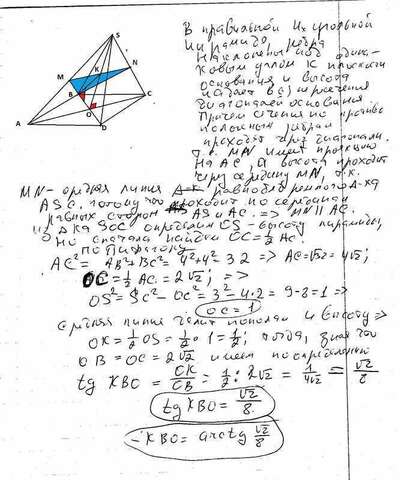 S
M
K
N
B
C
O
A
D
В правильной 4х угольной
пирамиде ребра
наклонены под один-
ковым углом к плоскости
основания и высота
падает в () пересечения
диагоналей основания
Причем сечения по противо
положным ребрам
проходят через диагонали.
т.к. MN имеет проекцию
на AC, а высота проходит
через середину MN, т.к.
MN - средняя линия равнобедренного Δ-ка
ASC. потому что проходит по середине
равных сторон AS и AC. => MN || AC.
из Δ ка SOC определим OS - высоту пирамиды,
Но сначала найдем OC = 1/2 AC.
по Пифагору
AC² = AB² + BC² = 4² + 4² = 32 => AC = √32 = 4√2;
OC = 1/2 AC = 2√2; =>
OS² = SC² - OC² = 3² - 4·2 = 9 - 8 = 1 =>
OC = 1
Средняя линия делит пополам и высоту =>
OK = 1/2 OS = 1/2 · 1 = 1/2; тогда, зная что
OB = OC = 2√2 имеем по определению
tg KBO = OK/OB = 1/2 : 2√2 = 1/4√2 = √2/8
tg KBO = √2/8.
KBO = arctg √2/8